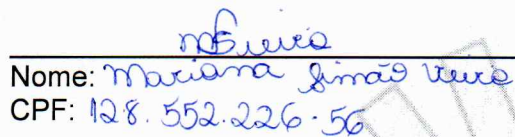 Nome: Mariana Simão Vieira
CPF: 128.552.226-56